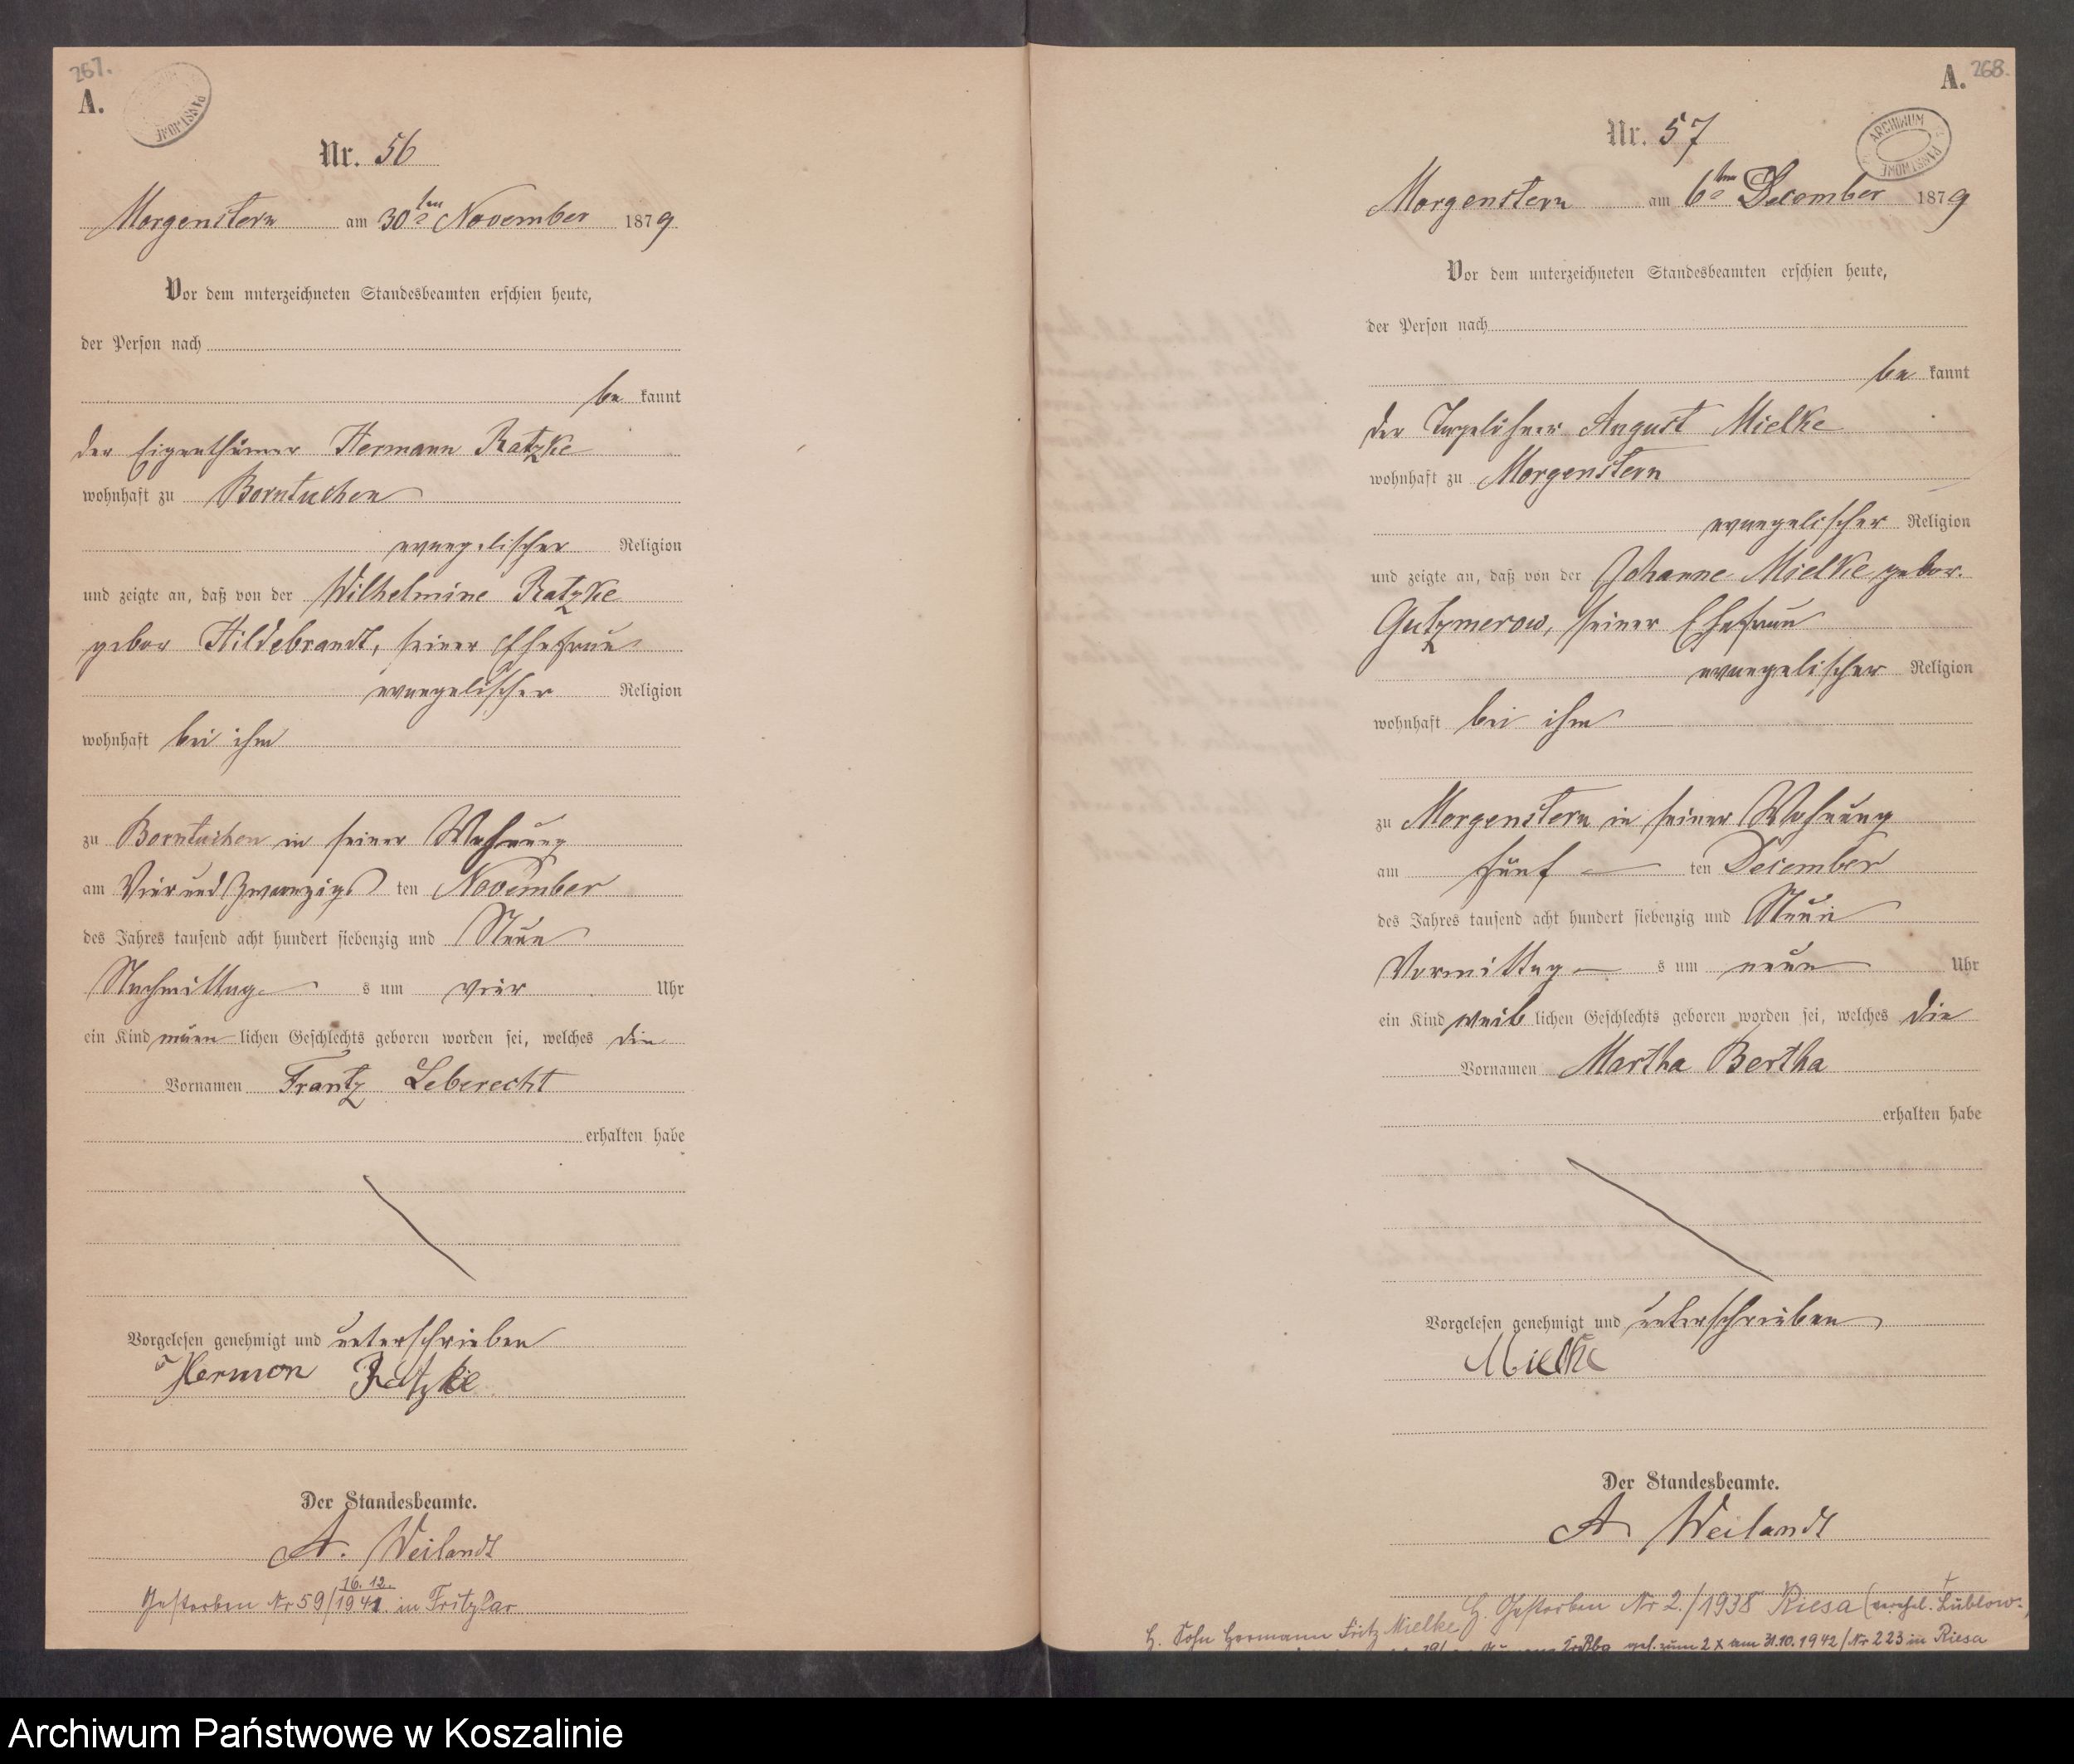 267.
A.
Nr. 56
Morgenstern am 30ten November 1879
Vor dem unterzeichneten Standesbeamten erschien heute,
der Person nach
be kannt
der Eigenthümer Hermann Ratzke
wohnhaft zu Borntuchen
evangelischer Religion
und zeigte an, daß von der Wilhelmine Ratzke
gebor Hildebrandt, seiner Ehefrau
evangelischer Religion
wohnhaft bei ihm
zu Borntuchen in seiner Wohnung
am Vier und zwanzigs ten November
des Jahres tausend acht hundert siebenzig und Neun
Nachmittag s um vier Uhr
ein Kind männ lichen Geschlechts geboren worden sei, welches die
Vornamen Frantz Leberecht
erhalten habe
Vorgelesen genehmigt und unterschrieben
Hermon Ratzke
Der Standesbeamte.
A. Weilandt
Gestorben Nr 59/16.12.1941 in Fritzlar
A. 268.
ARCHIWUM PAŃSTWOWE
Nr. 57
Morgenstern am 6ten December 1879
Vor dem unterzeichneten Standesbeamten erschien heute,
der Person nach
be kannt
der Tagelöhner August Mielke
wohnhaft zu Morgenstern
evangelischer Religion
und zeigte an, daß von der Johanne Mielke gebor.
Gutzmerow, seiner Ehefrau
evangelischer Religion
wohnhaft bei ihm
zu Morgenstern in seiner Wohnung
am fünf ten December
des Jahres tausend acht hundert siebenzig und Neun
Vormittag s um neun Uhr
ein Kind weib lichen Geschlechts geboren worden sei, welches die
Vornamen Martha Bertha
erhalten habe
Vorgelesen genehmigt und unterschrieben
Mielke
Der Standesbeamte.
A Weilandt
G. Gestorben Nr 2./1938 Riesa (verehel. Lüblow.)
G. Sohn Hermann Fritz Mielke
am 31.10.1942/Nr 223 in Riesa
Archiwum Państwowe w Koszalinie